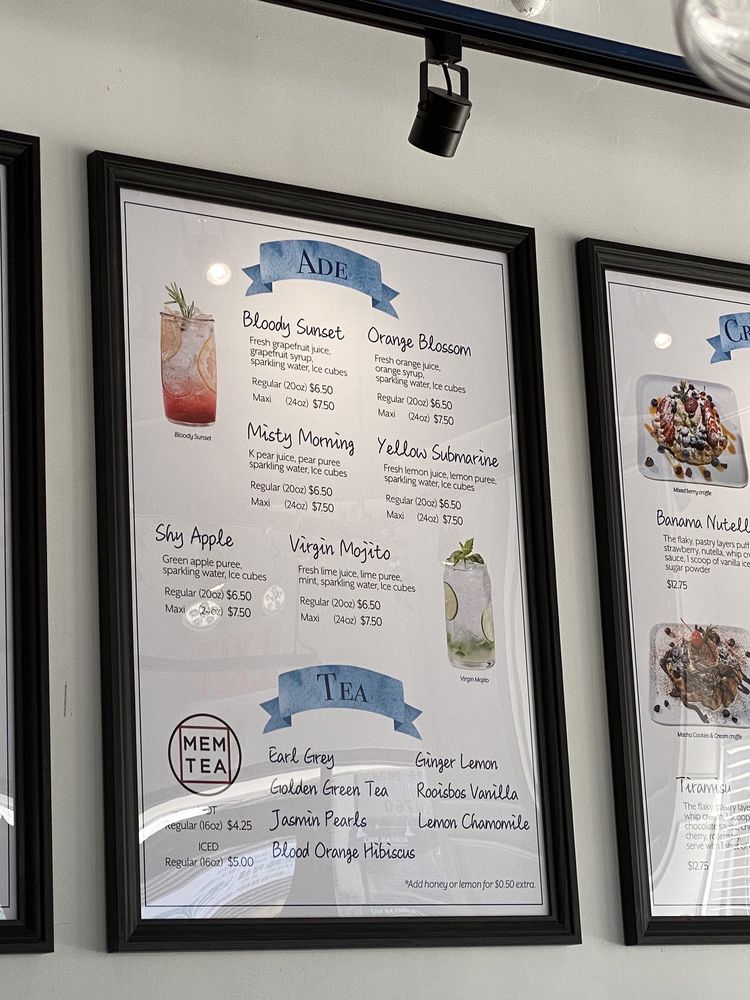 ADE
Bloody Sunset
Fresh grapefruit juice,
grapefruit syrup,
sparkling water, Ice cubes
Regular (20oz) $6.50
Maxi (24oz) $7.50
Bloody Sunset
Orange Blossom
Fresh orange juice,
orange syrup,
sparkling water, Ice cubes
Regular (20oz) $6.50
Maxi (24oz) $7.50
Misty Morning
K pear juice, pear puree
sparkling water, Ice cubes
Regular (20oz) $6.50
Maxi (24oz) $7.50
Yellow Submarine
Fresh lemon juice, lemon puree,
sparkling water, Ice cubes
Regular (20oz) $6.50
Maxi (24oz) $7.50
Shy Apple
Green apple puree,
sparkling water, Ice cubes
Regular (20oz) $6.50
Maxi (24oz) $7.50
Virgin Mojito
Fresh lime juice, lime puree,
mint, sparkling water, Ice cubes
Regular (20oz) $6.50
Maxi (24oz) $7.50
Virgin Mojito
TEA
MEM
TEA
Regular (16oz) $4.25
ICED
Regular (16oz) $5.00
Earl Grey
Golden Green Tea
Jasmin Pearls
Blood Orange Hibiscus
Ginger Lemon
Rooisbos Vanilla
Lemon Chamomile
*Add honey or lemon for $0.50 extra.
CR
Mixed berry croffle
Banama Nutell
The flaky, pastry layers puff
strawberry, nutella, whip cr
sauce, 1 scoop of vanilla ice
sugar powder
$12.75
Macha Cookies & Cream croffle
Tiramisu
The flaky, pastry laye
whip
chocolate
cherry,
serve
$12.75